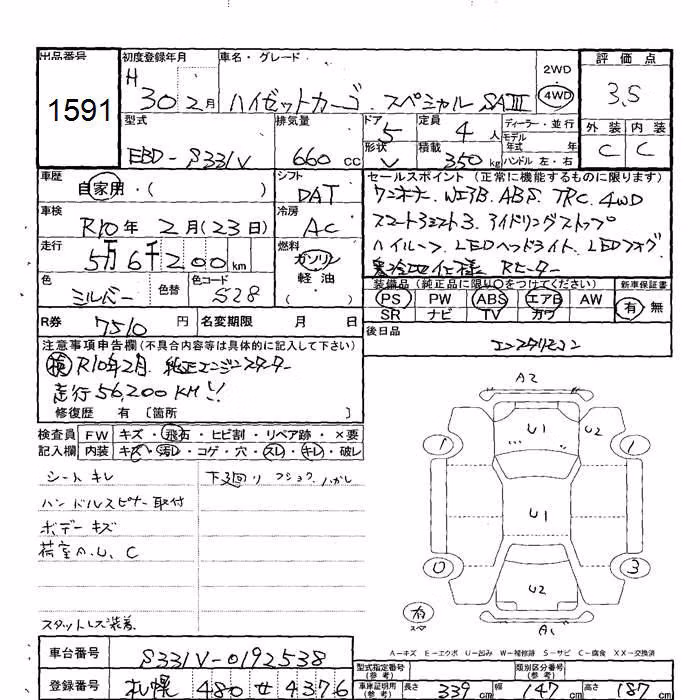 出品番号 初度登録年月 車名・グレード 2WD 評価点
1591 H 30 2月 ハイゼットカーゴ スペシャル SAⅢ 4WD 3.5
型式 排気量 ドア 定員 ディーラー・並行 外装 内装
EBD-S331V 660cc 5 4人 モデル年式 年 C C
形状 V 積載 350kg ハンドル 左・右
車歴 自家用・( ) シフト DAT
セールスポイント(正常に機能するものに限ります)
ワンオーナー WエアB ABS TRC 4WD
スマートアシスト3 アイドリングストップ
ハイルーフ LEDヘッドライト LEDフォグ
寒冷地仕様 Rヒーター
車検 R10年 2月(23日) 冷房 AC
走行 5万6千200km 燃料 ガソリン 軽油 ( )
色 シルバー 色替 色コード S28
装備品(純正品に限り○をつけてください) 新車保証書
PS PW ABS エアB AW 有 無
SR ナビ TV カワ
R券 7510円 名変期限 月 日 後日品
エンスタリモコン
注意事項申告欄(不具合内容等は具体的に記入して下さい)
検 R10年2月 純正エンジンスターター
走行56,200KM!!
修復歴 有 〔箇所 〕
検査員 FW キズ・飛石・ヒビ割・リペア跡・×要
記入欄 内装 キズ・汚レ・コゲ・穴・スレ・キレ・破レ
シートキレ 下廻り
ハンドルスピナー取付
ボデーキズ
荷室A、U、C
スタットレス装着
A2
1 U1 U2 1
U1
0 U2 3
有 スペ A1
A-キズ E-エクボ U-凹み W-補修跡 S-サビ C-腐食 XX-交換済
車台番号 S331V-0192538
型式指定番号(参考) 類別区分番号(参考)
登録番号 札幌 480 せ 4376
車庫証明用(参考) 長さ 339cm 幅 147cm 高さ 187cm